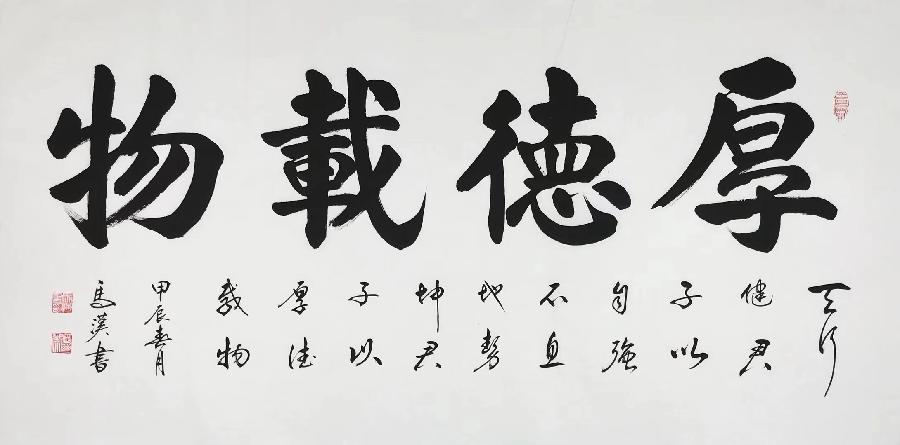 厚德載物
天行
健君
子以
自強
不息
地勢
坤君
子以
厚德
載物
甲辰春月
馬漢書